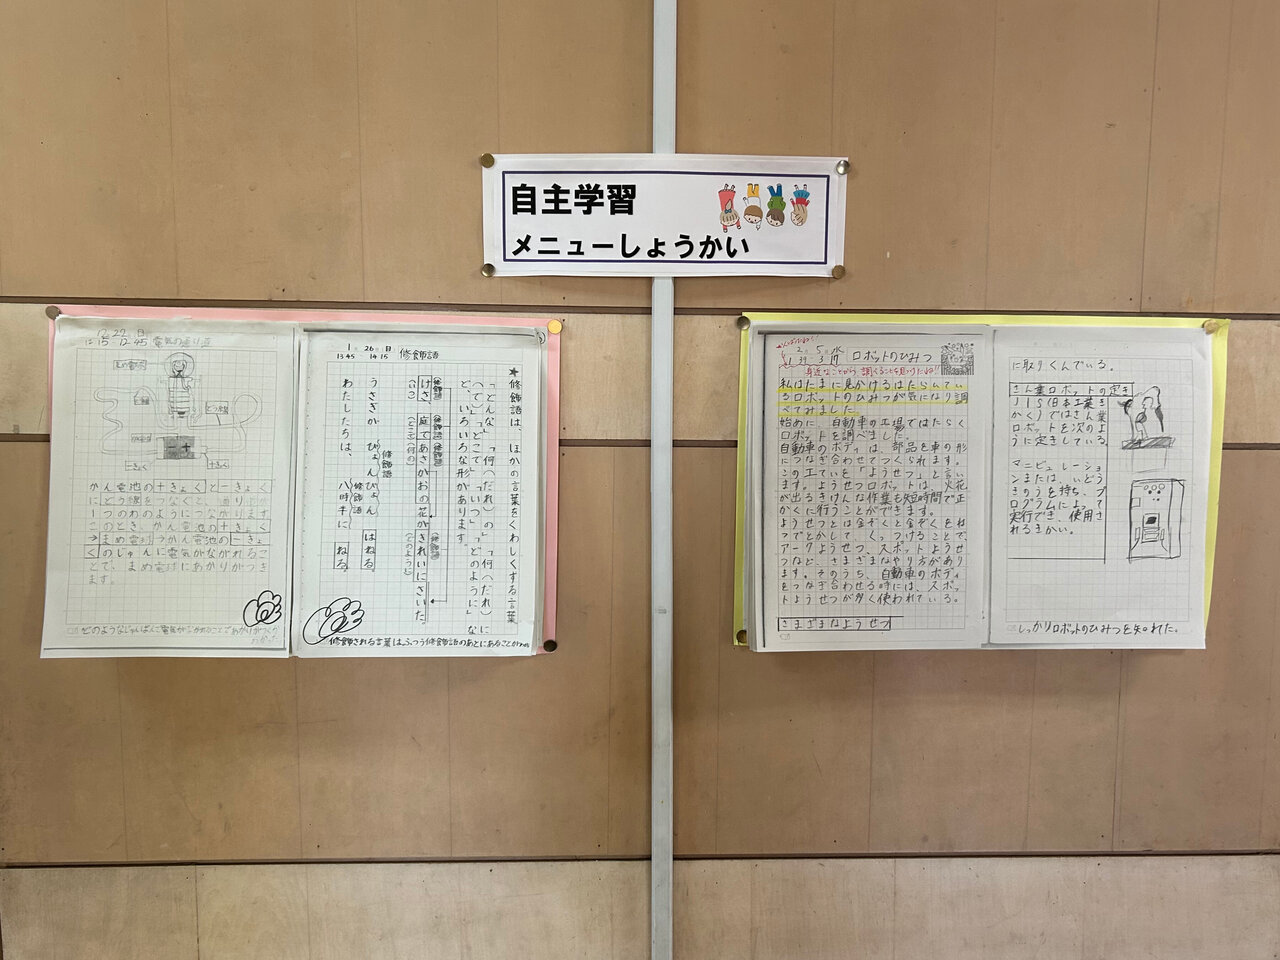 自主学習
メニューしょうかい
12 22 日
12 15 12 45 電気の通り道
どう線
+きょく
かん電池の+きょくと-きょく
にどう線をつなぐと、通り道が
1つのわのようにつながります
このとき、かん電池の+きょく
→まめ電球→かん電池の-きょ
くのじゅんに電気がながれるこ
とで、まめ電球にあかりがつき
ます。
1 26 日
13 45 14 15 修飾語
★修飾語は、ほかの言葉をくわしくする言葉
「どんな」「何(だれ)の」「何(だれ)に
(て)」「どこで」「いつ」「どのように」な
ど、いろいろな形があります。
修飾語 修飾語 修飾語 修飾語
けさ、庭であさがおの花がきれいにさいた。
(いつ) (どこで) (何の) (どのように)
修飾語
うさぎが ぴょんぴょん はねる。
修飾語
わたしたちは、八時半に ねる。
修飾される言葉はふつう修飾語のあとにあることがわかった
2 5 水
ロボットのひみつ
身近なことから調べることを見つけたね!!
私はたまに見かけるはたらいてい
るロボットのひみつが気になり調
べてみました。
始めに、自動車の工場ではたらく
ロボットを調べました。
自動車のボディは、部品を車の形
につなぎ合わせてつくられます。
この工ていを「ようせつ」と言い
ます。ようせつロボットは、火花
が出るきけんな作業も短時間で正
かくに行うことができます。
ようせつとは金ぞくと金ぞくをね
つでとかして、くっつけることで、
アークようせつ、スポットようせ
つなど、さまざまなやり方があり
ます。そのうち、自動車のボディ
をつなぎ合わせる時には、スポッ
トようせつが多く使われている。
さまざまなようせつ
に取りくんでいる。
さん業ロボットの定ぎ
JIS(日本工業き
かく)ではさん業
ロボットを次のよ
うに定ぎしている。
マニピュレーショ
ンまたは、いどう
きのうを持ち、プ
ログラムによって
実行でき、使用さ
れるきかい。
しっかりロボットのひみつを知れた。